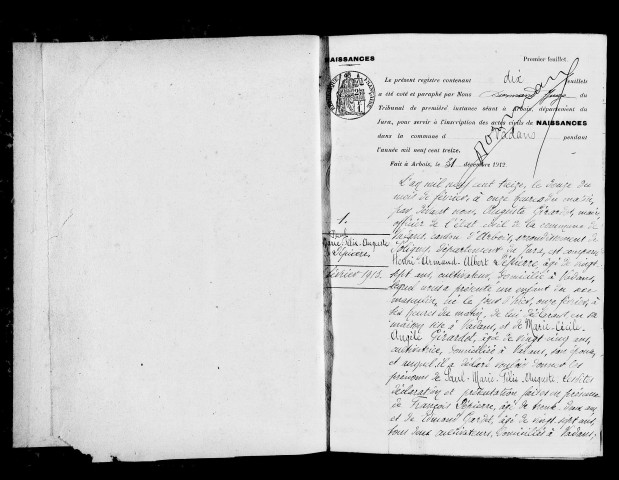 NAISSANCES
Premier feuillet.
Le présent registre contenant dix feuillets
a été coté et paraphé par Nous Normand Juge du
Tribunal de première instance séant à Arbois, département du
Jura, pour servir à l'inscription des actes civils de NAISSANCES
dans la commune d Vadans pendant
l'année mil neuf cent treize.
Fait à Arbois, le 31 décembre 1912.
Normand
1.
Paul
Marie-Félix-Auguste
Lépievre
février 1913.
L'an mil neuf cent treize, le douze du
mois de février, à onze heures du matin,
par devant nous, Auguste Girardot, maire
officier de l'état civil de la commune de
Vadans, canton d'Arbois, arrondissement de
Poligny, département du Jura, est comparu
Armand-Albert Lépievre, âgé de vingt
sept ans, cultivateur, domicilié à Vadans,
lequel nous a présenté un enfant du sexe
masculin, né le jour d'hier, onze février, à
heures du matin, de lui déclarant en sa
maison sise à Vadans, et de Marie-Cécile-
Angèle Girardot, âgée de vingt cinq ans,
cultivatrice, domiciliée à Vadans, son épouse,
et auquel il a déclaré vouloir donner les
prénoms de Paul-Marie-Félix-Auguste. Lesdites
déclaration et présentation faites en présence
de François Lépievre, âgé de trente deux ans
et de Edmond Gardet, âgé de vingt sept ans,
tous deux cultivateurs, domiciliés à Vadans,